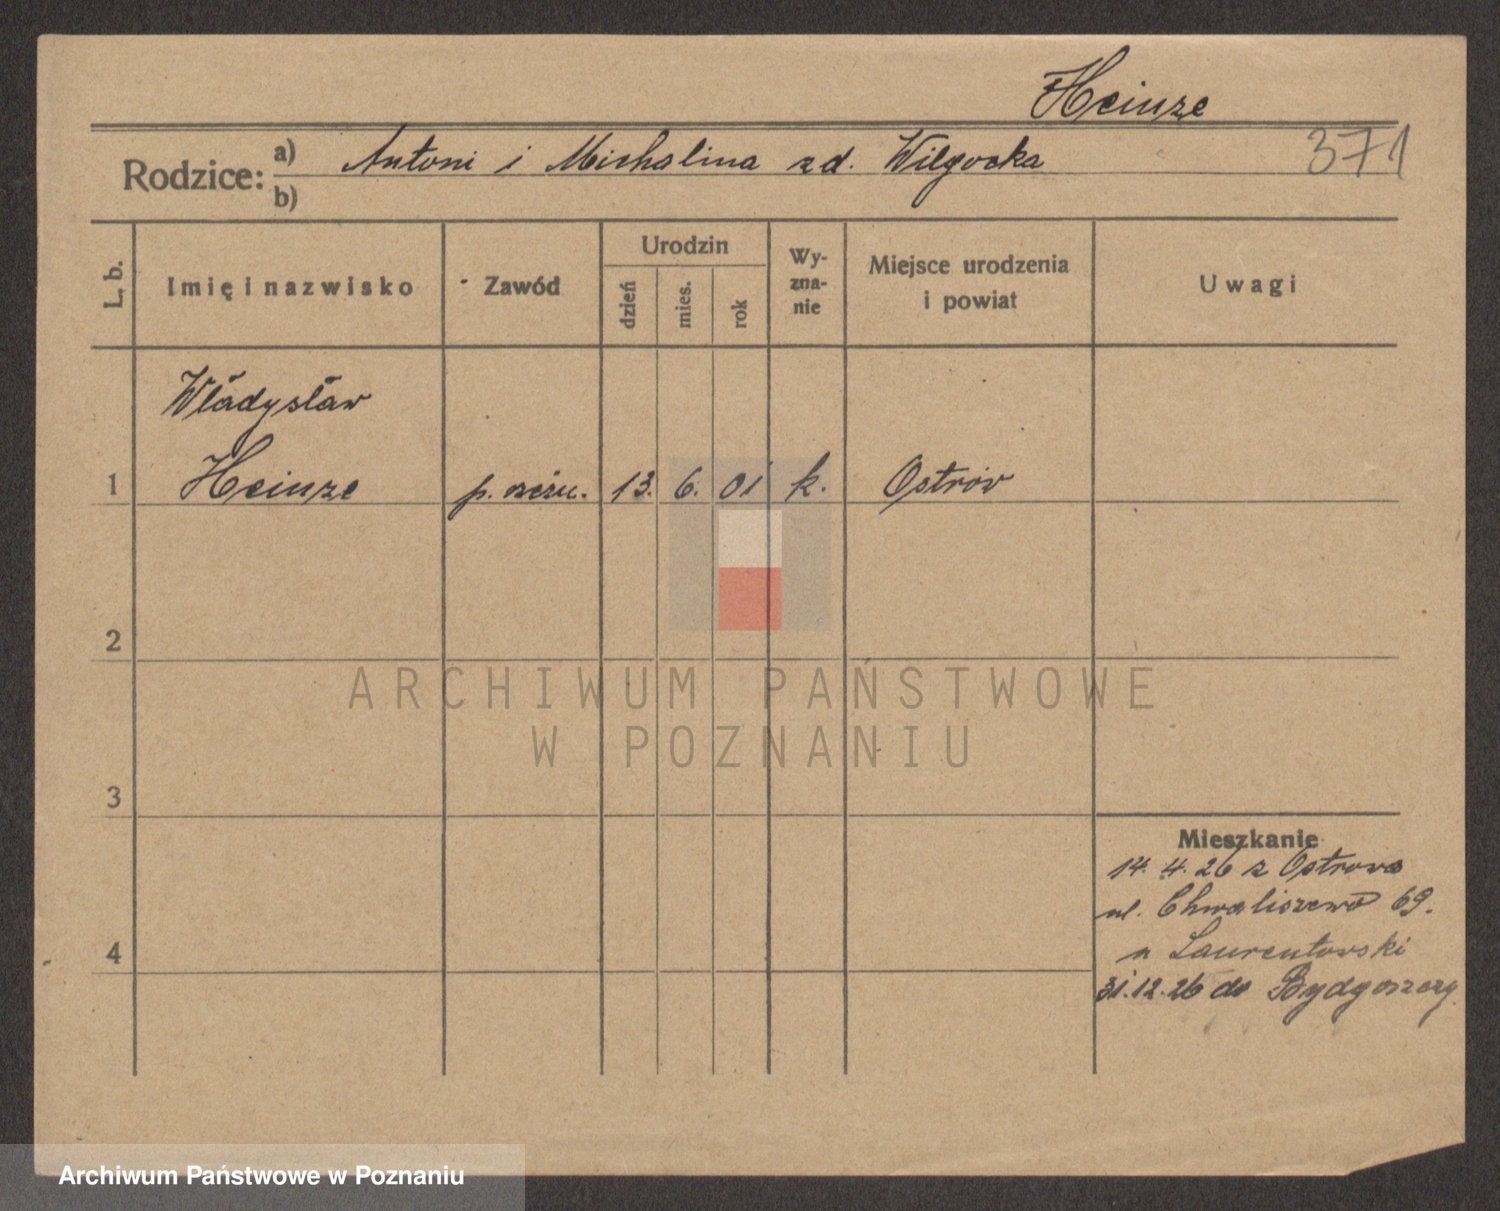 Heinze
371
Rodzice:
a) Antoni i Michalina zd. Wilgocka
b)
L. b.
Imię i nazwisko
Zawód
Urodzin
dzień
mies.
rok
Wy-
zna-
nie
Miejsce urodzenia
i powiat
Uwagi
Władysław
1 Heinze p. 13. 6. 01 k. Ostrów
2
3
4
Mieszkanie
14. 4. 26 z Ostrowa
ul. Chwaliszewo 69.
u Laurentowski
31.12.26 do Bydgoszczy
ARCHIWUM PAŃSTWOWE
W POZNANIU
Archiwum Państwowe w Poznaniu